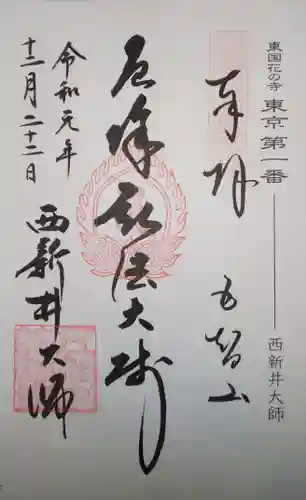 東国花の寺 東京 第一番 ―― 西新井大師
奉拝
五智山
厄除弘法大師
令和元年
十二月二十二日
西新井大師